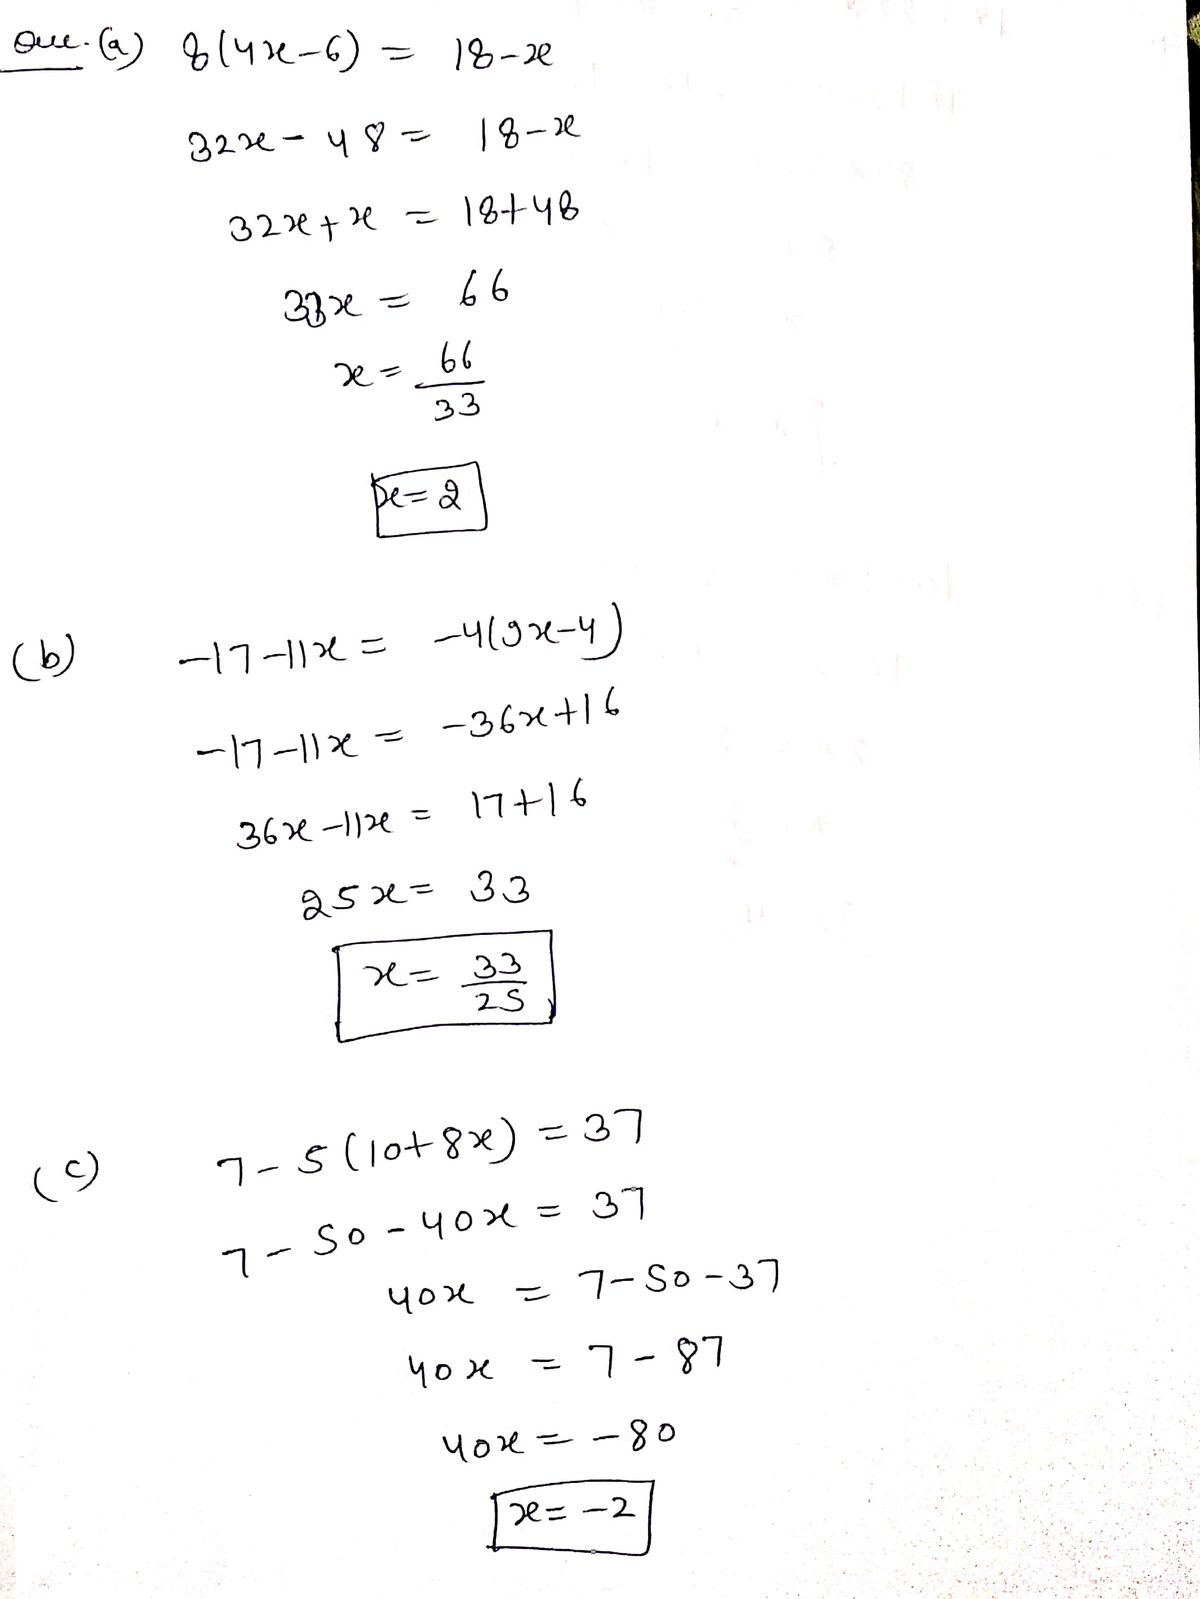 Que. (a) 8(4x-6) = 18-x
32x - 48 = 18-x
32x + x = 18+48
33x = 66
x = 66/33
x = 2
(b) -17-11x = -4(9x-4)
-17-11x = -36x+16
36x-11x = 17+16
25x = 33
x = 33/25
(c) 7-5(10+8x) = 37
7-50-40x = 37
40x = 7-50-37
40x = 7-87
40x = -80
x = -2